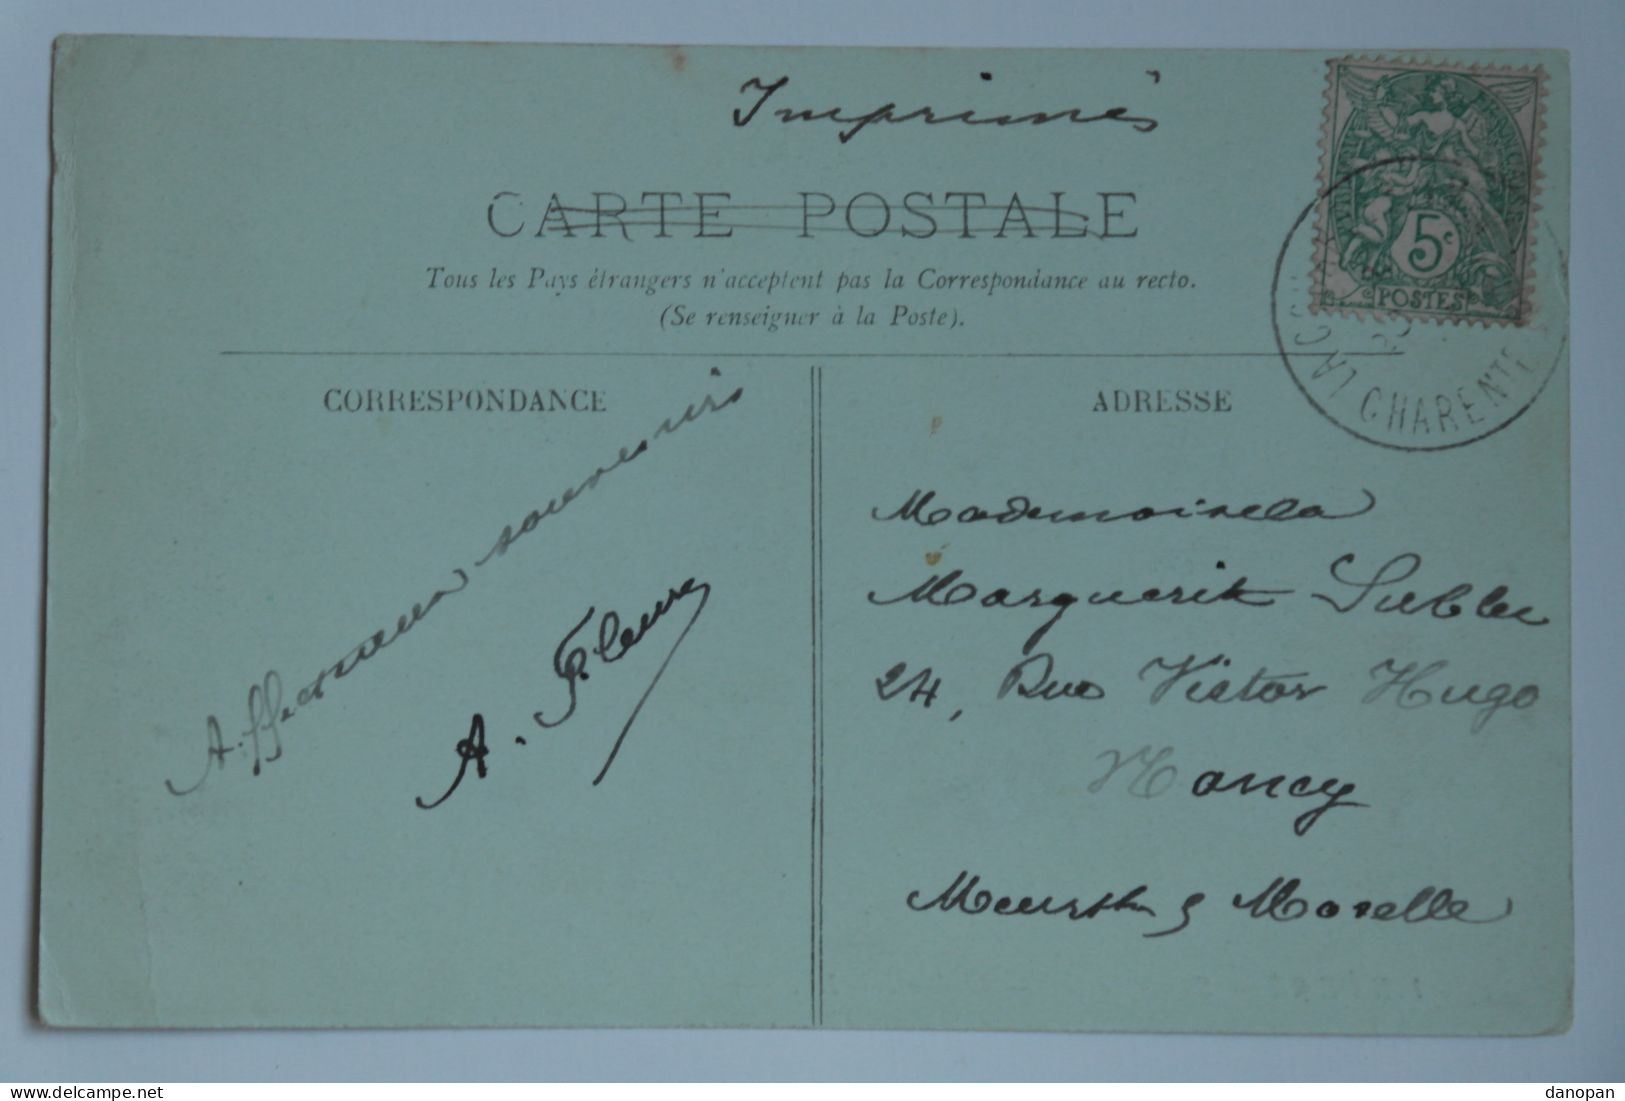 Imprimés
CARTE POSTALE
Tous les Pays étrangers n'acceptent pas la Correspondance au recto.
(Se renseigner à la Poste).
CORRESPONDANCE
Affectueux souvenirs
A. Fleury
ADRESSE
Mademoiselle
Marguerite
24, Rue Victor Hugo
Nancy
Meurthe & Moselle
5c
POSTES
LA
CHARENTE
delcampe.net
danopan